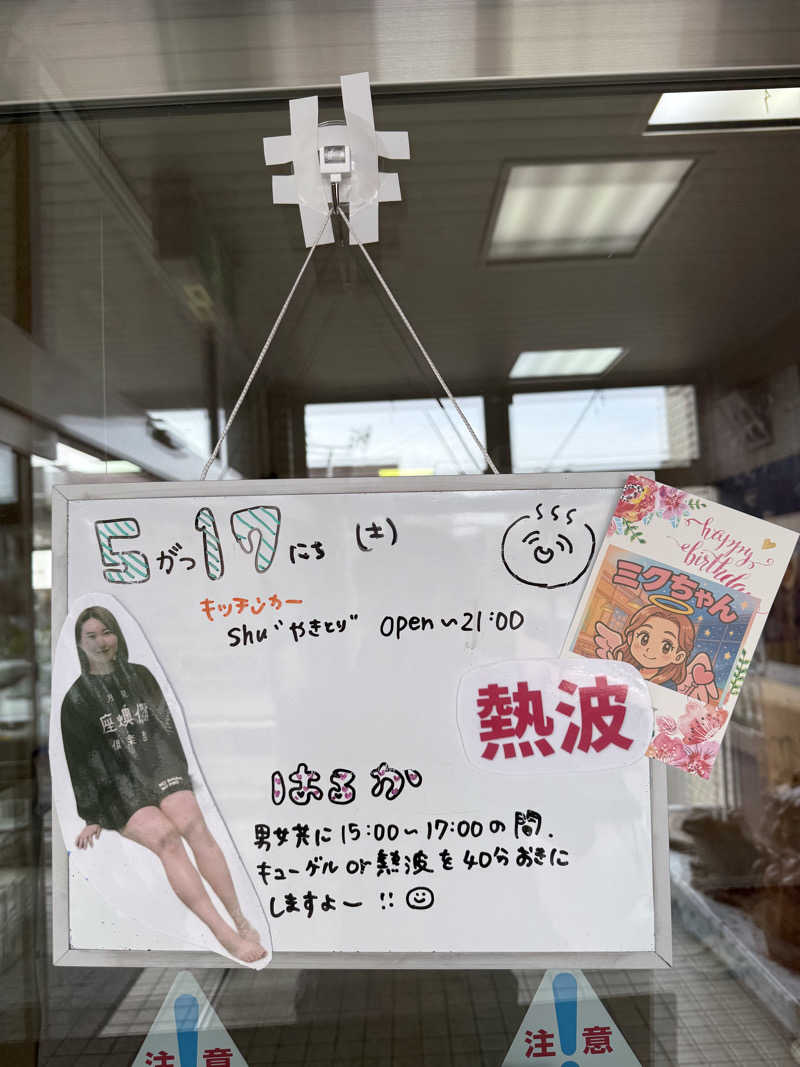 5がつ17にち (土)
キッチンカー
Shu"やきとり" open～21:00
happy
birthday
ミクちゃん
熱波
はるか
男女共に15:00～17:00の間.
キューゲルor熱波を40分おきに
しますよー!!
注!意
注!意